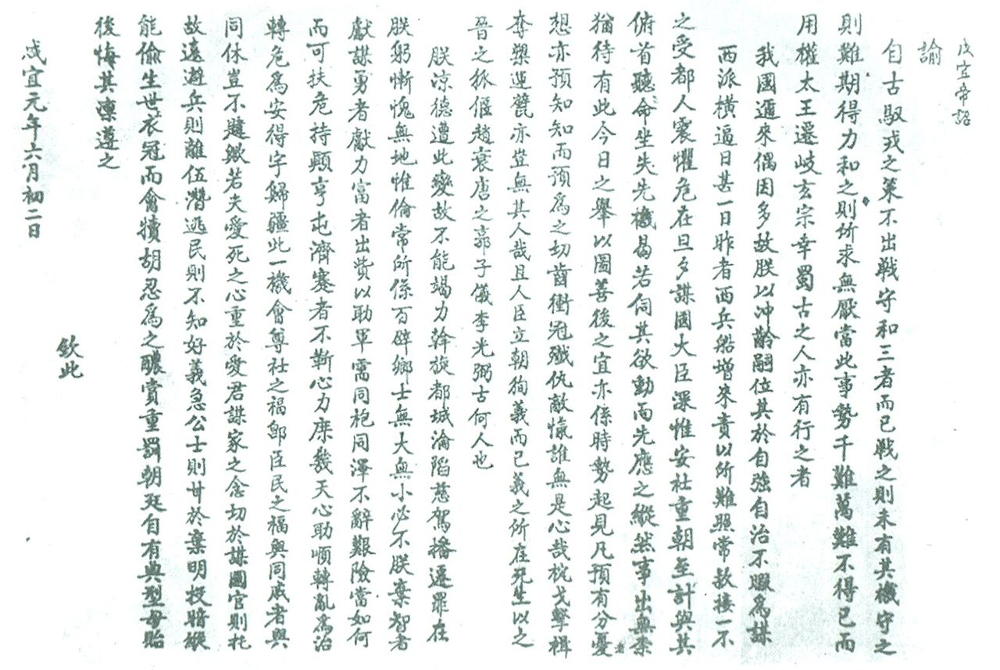 咸宜帝詔
諭
自古馭戎之策不出戰守和三者而已戰之則未有其機守之
則難期得力和之則所求無厭當此事勢千難萬難不得已而
用權太王遷岐玄宗幸蜀古之人亦有行之者
我國邇來偶因多故朕以沖齡嗣位其於自強自治不暇為謀
西派橫逼日甚一日昨者西兵船增來責以所難照常款接一不
之受都人震懼危在旦夕謀國大臣深惟安社重朝至計與其
俯首聽命坐失先機曷若伺其欲動而先應之縱然事出無柰
猶待有此今日之舉以圖善後之宜亦係時勢起見凡預有分憂者
想亦預知知而預為之切齒衝冠殲仇敵愾誰無是心哉枕戈擊楫
奪槊運甓亦豈無其人哉且人臣立朝狥義而已義之所在死生以之
晉之狐偃趙衰唐之郭子儀李光弼古何人也
朕涼德遭此變故不能竭力斡旋都城淪陷慈駕播遷罪在
朕躬慚愧無地惟倫常所係百辟鄉士無大無小必不朕棄智者
獻謀勇者獻力富者出貲以助軍需同袍同澤不辭艱險當如何
而可扶危持顛亨屯濟蹇者不靳心力庶幾天心助順轉亂為治
轉危為安得宇歸疆此一機會尊社之福卽臣民之福與同戚者與
同休豈不韙歟若夫愛死之心重於愛君謀家之念切於謀國官則托
故遠避兵則離伍潛逃民則不知好義急公士則甘於棄明投暗縱
能偷生世衣冠而禽犢胡忍為之醲賞重罰朝廷自有典型毋貽
後悔其凜遵之
欽此
咸宜元年六月初二日